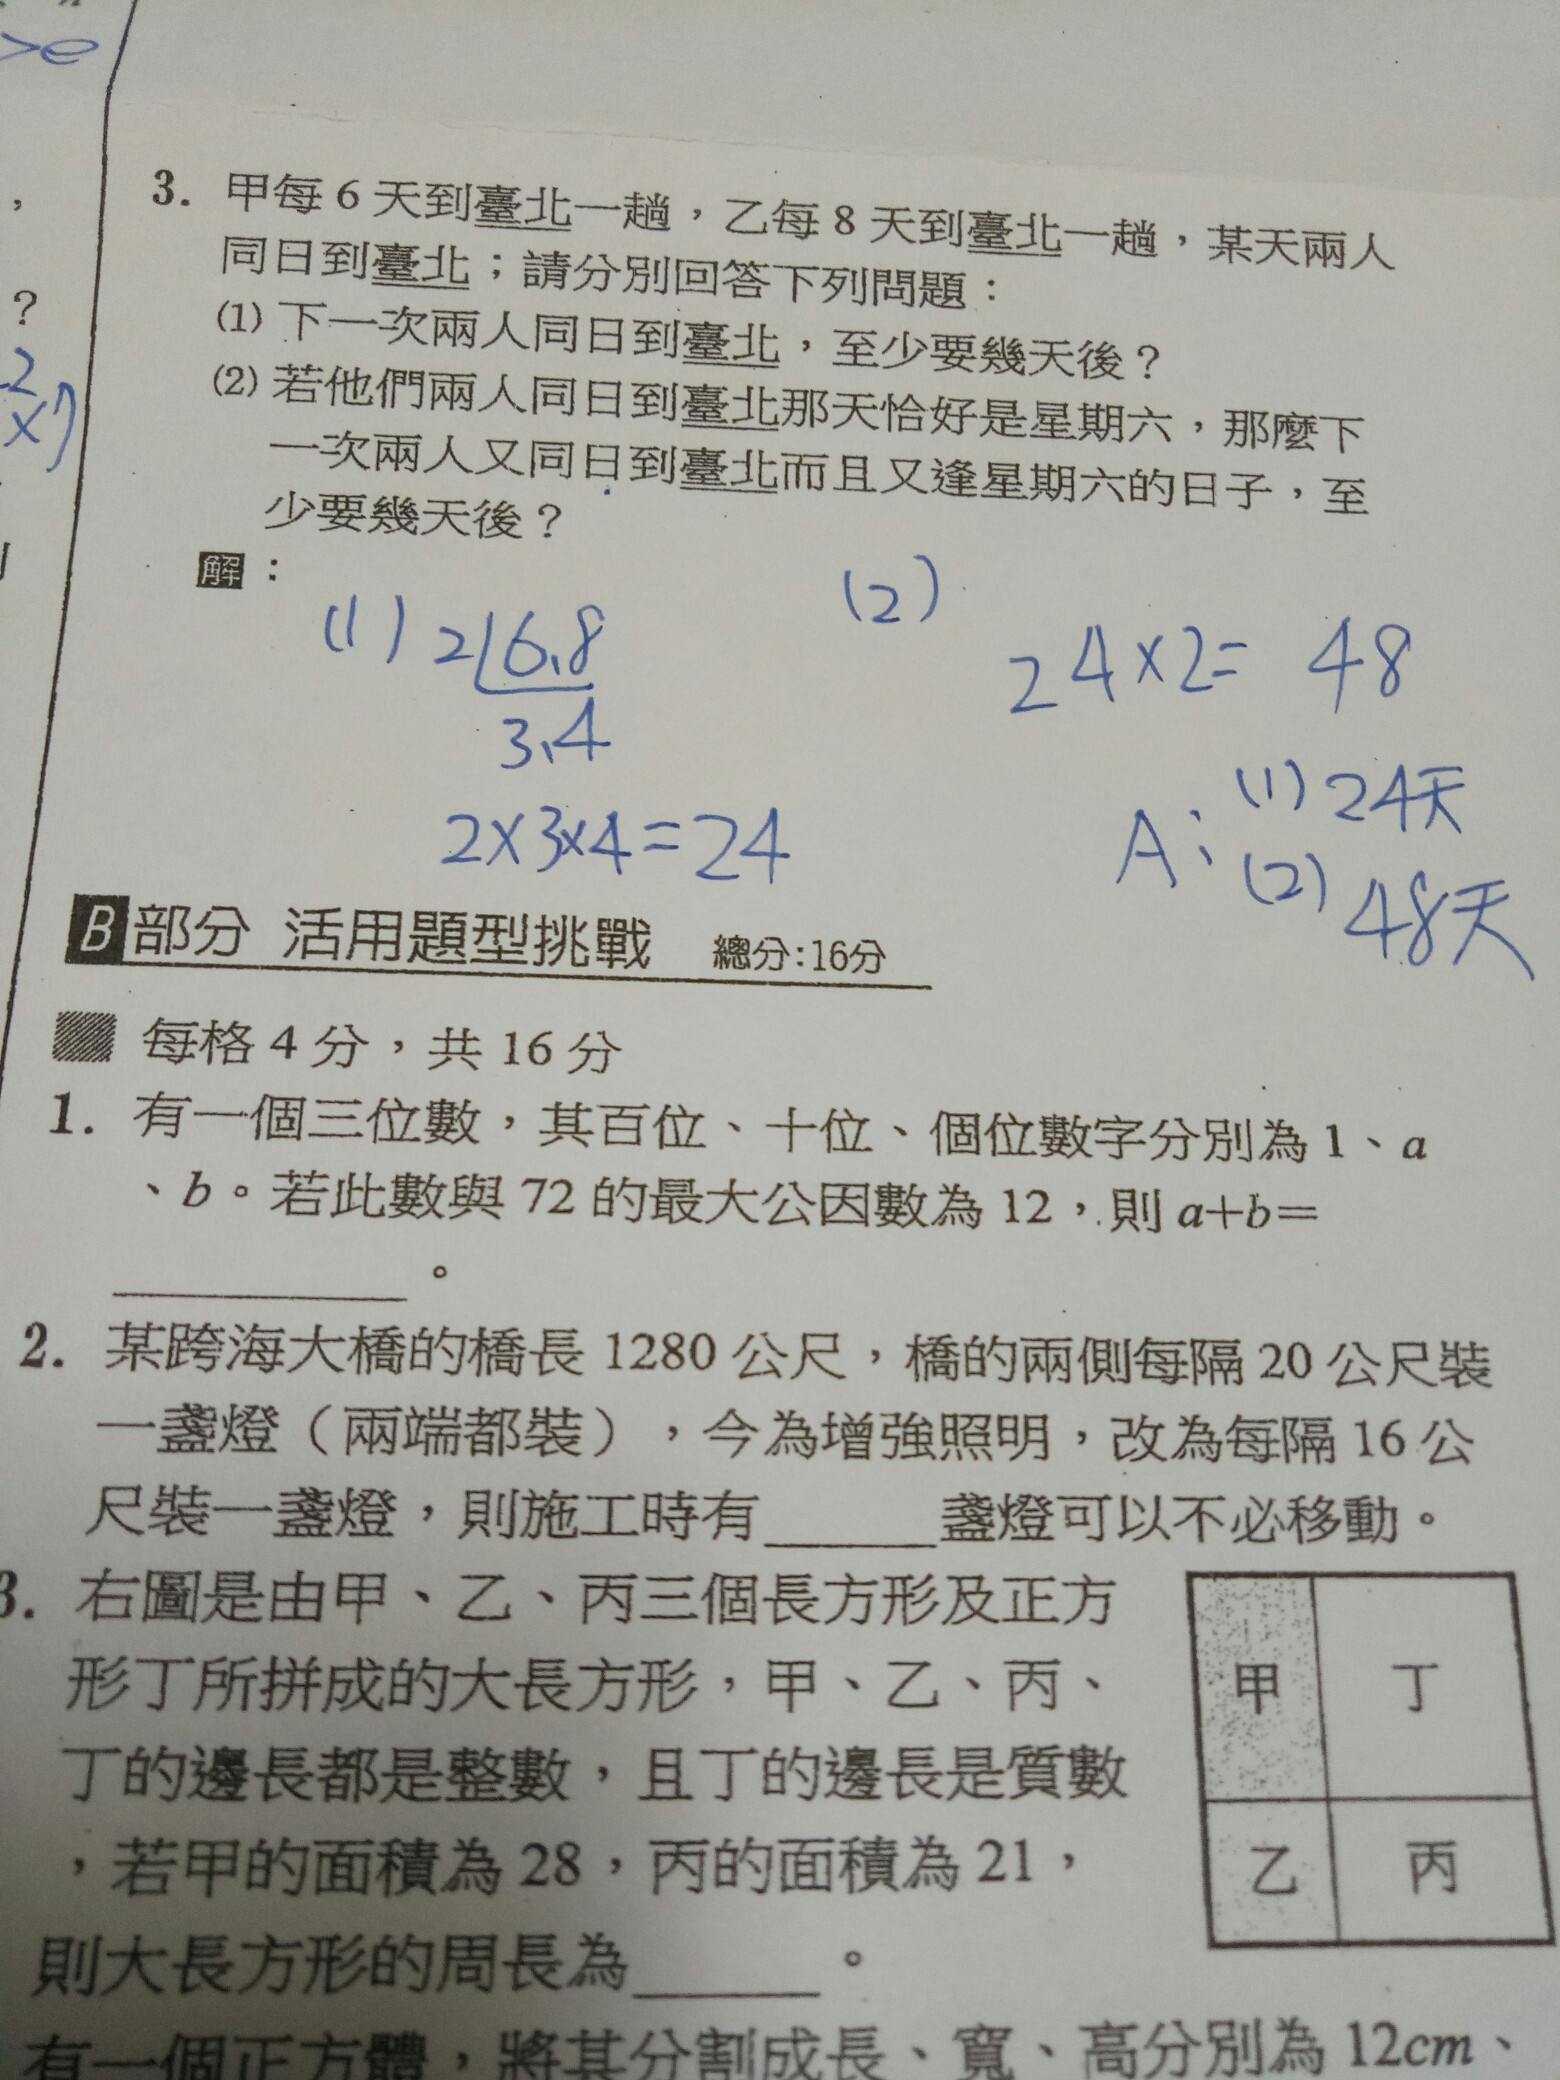 >e
,
?
2
x7
3. 甲每 6 天到臺北一趟，乙每 8 天到臺北一趟，某天兩人
同日到臺北；請分別回答下列問題：
(1) 下一次兩人同日到臺北，至少要幾天後？
(2) 若他們兩人同日到臺北那天恰好是星期六，那麼下
一次兩人又同日到臺北而且又逢星期六的日子，至
少要幾天後？
解：
(1) 2|6,8
3,4
2×3×4=24
(2)
24×2= 48
A: (1) 24天
(2) 48天
B部分 活用題型挑戰 總分:16分
每格 4 分，共 16 分
1. 有一個三位數，其百位、十位、個位數字分別為 1、a
、b。若此數與 72 的最大公因數為 12，則 a+b=
______。
2. 某跨海大橋的橋長 1280 公尺，橋的兩側每隔 20 公尺裝
一盞燈（兩端都裝），今為增強照明，改為每隔 16 公
尺裝一盞燈，則施工時有______盞燈可以不必移動。
3. 右圖是由甲、乙、丙三個長方形及正方
形丁所拼成的大長方形，甲、乙、丙、
丁的邊長都是整數，且丁的邊長是質數
，若甲的面積為 28，丙的面積為 21，
則大長方形的周長為______。
甲 丁
乙 丙
有一個正方體，將其分割成長、寬、高分別為 12cm、